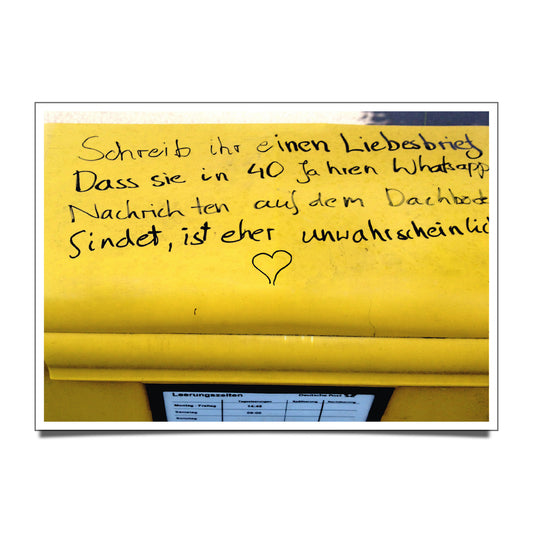 Schreib ihr einen Liebesbrief
Dass sie in 40 Jahren Whatsapp
Nachrichten auf dem Dachbode
findet, ist eher unwahrscheinlic
Leerungszeiten
Deutsche Post
Montag - Freitag
Samstag
Sonntag